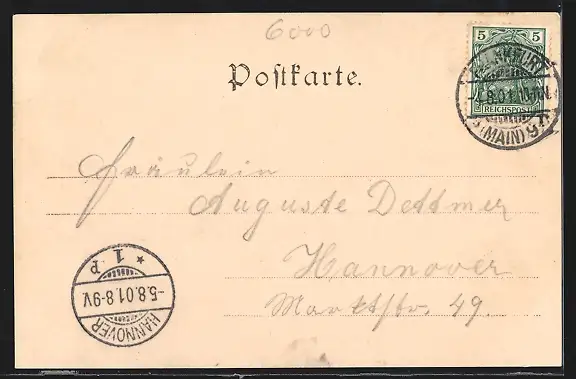 6000
Postkarte.
5 5
REICHSPOST
FRANKFURT
8.01
(MAIN)
Fräulein
Auguste Dettmer
Hannover
Marktstr. 49.
* 1 P
-5.8.01.8-9V
HANNOVER